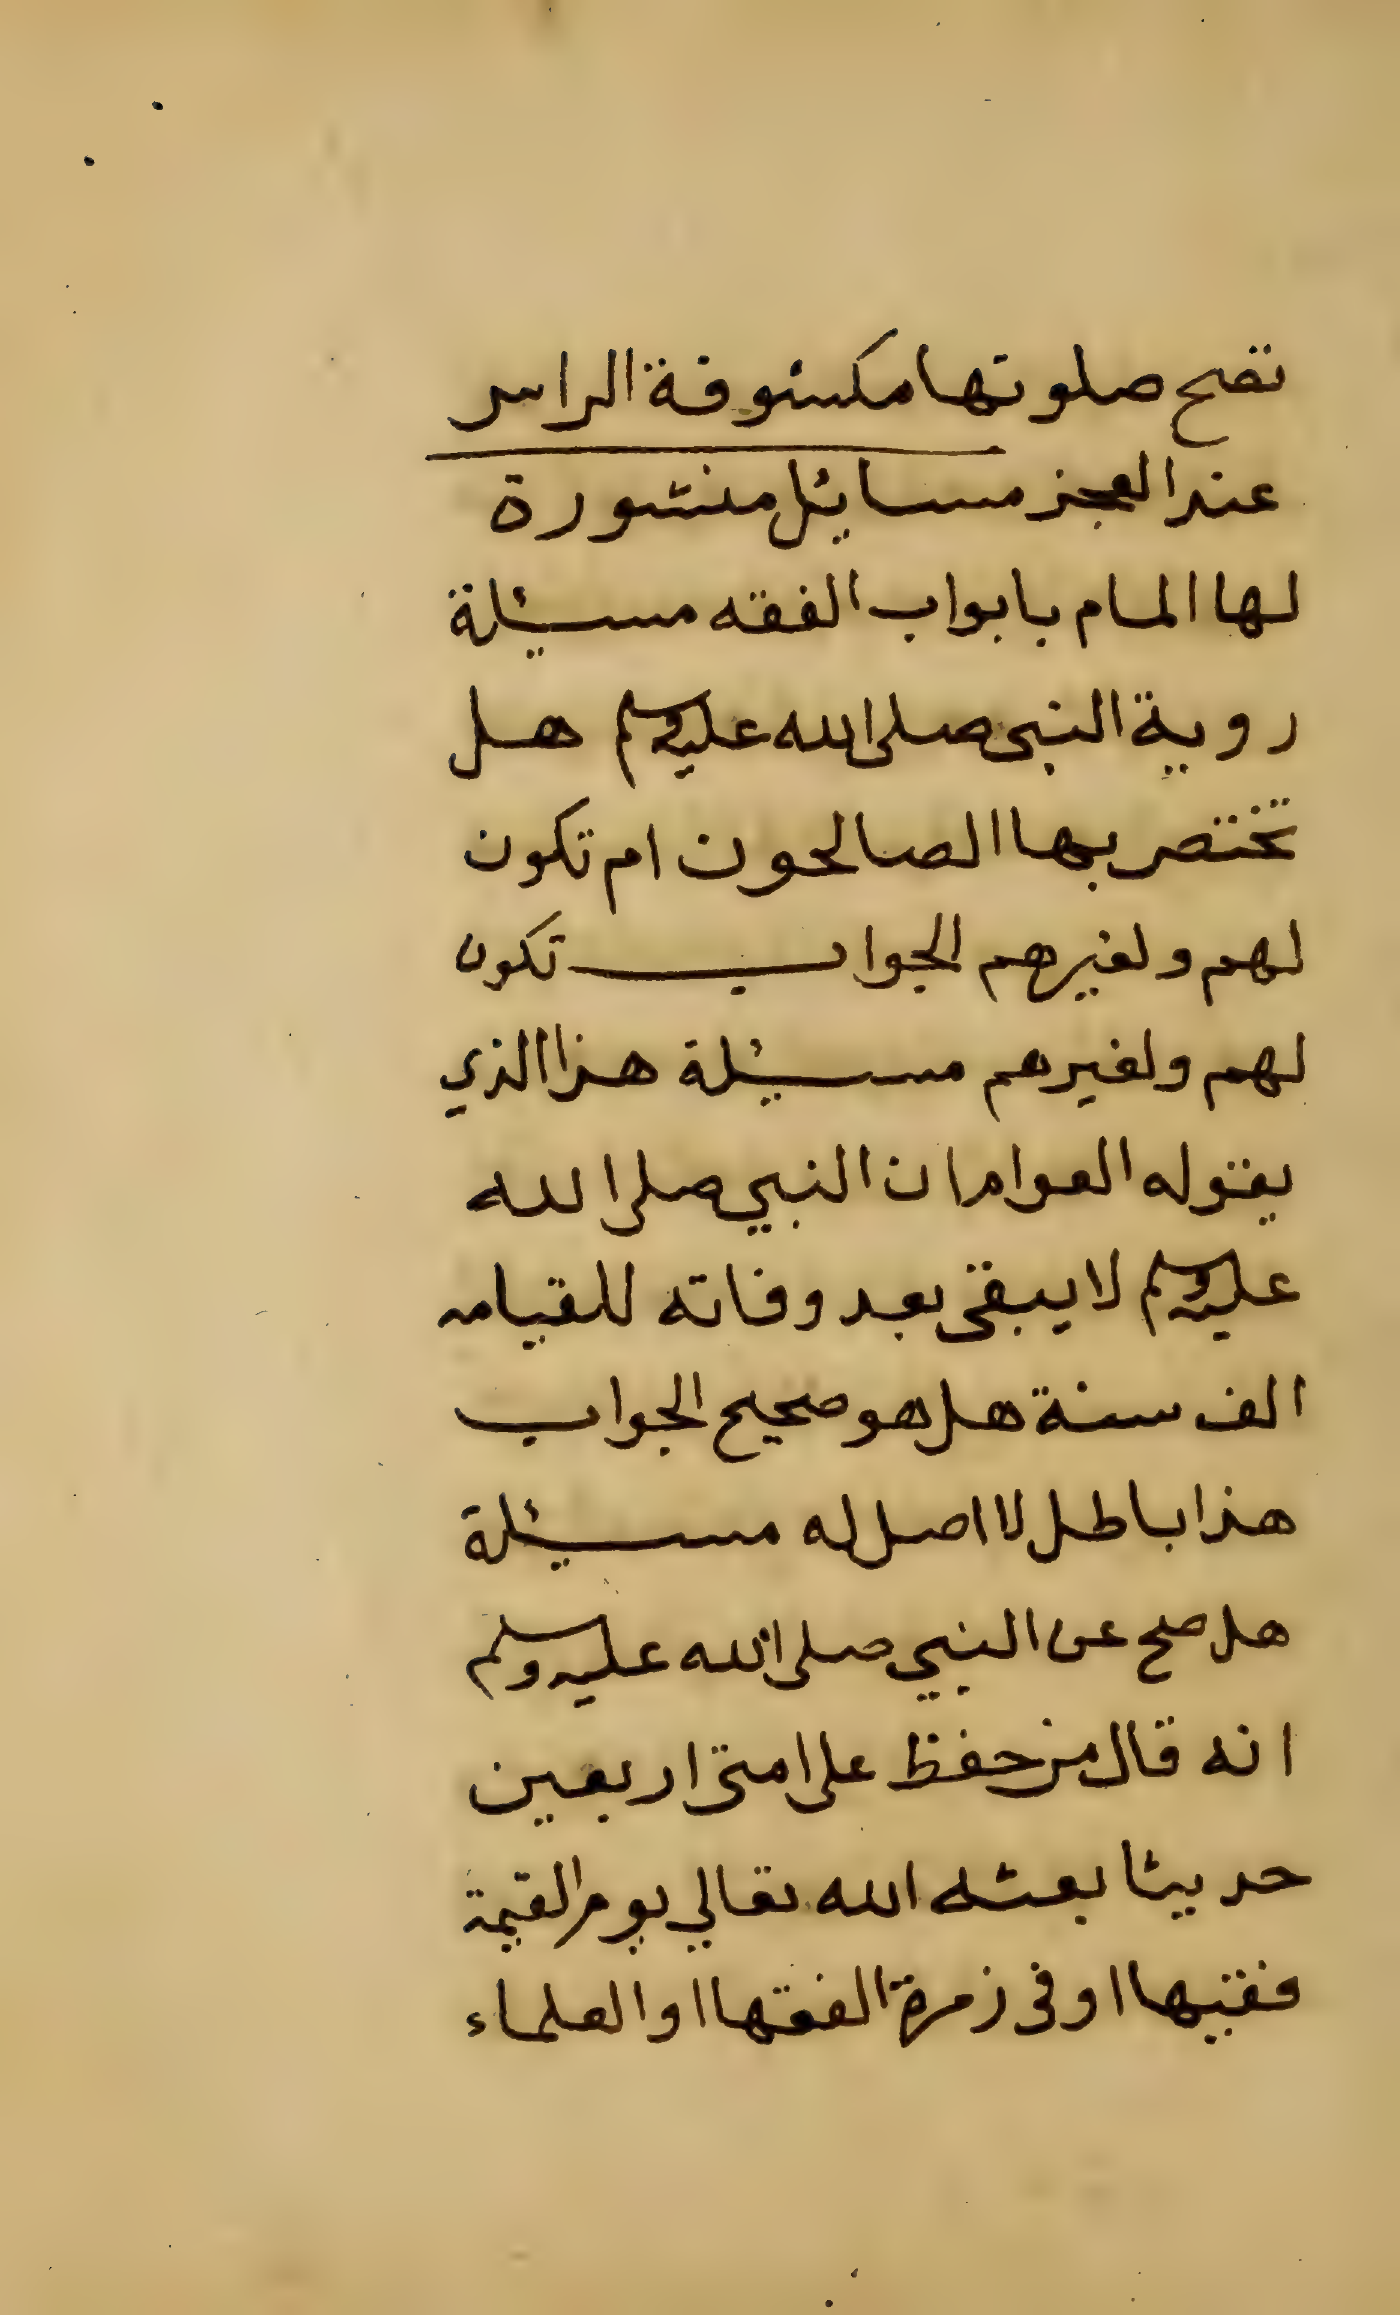 تصح صلوتها مكشوفة الراس
عند العجز مسائل منثورة
لها المام بابواب الفقه مسئلة
روية النبي صلى الله عليه وسلم هل
تختص بها الصالحون ام تكون
لهم ولغيرهم الجواب تكون
لهم ولغيرهم مسئلة هذا الذي
يقوله العوام ان النبي صلى الله
عليه وسلم لا يبقى بعد وفاته للقيامه
الف سنة هل هو صحيح الجواب
هذا باطل لا اصل له مسئلة
هل صح عن النبي صلى الله عليه وسلم
انه قال من حفظ على امتى اربعين
حديثا بعثه الله تعالي يوم القيمة
فقيها او فى زمرة الفقها او العلماء